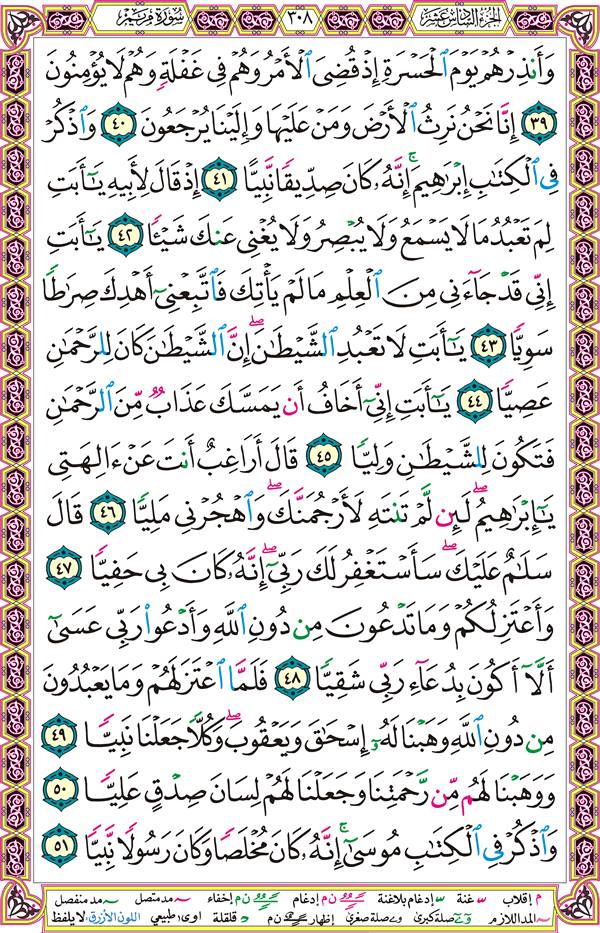 الجزء السادس عشر ٣٠٨ سورة مريم
وَأَنذِرْهُمْ يَوْمَ ٱلْحَسْرَةِ إِذْ قُضِىَ ٱلْأَمْرُ وَهُمْ فِى غَفْلَةٍ وَهُمْ لَا يُؤْمِنُونَ
٣٩ إِنَّا نَحْنُ نَرِثُ ٱلْأَرْضَ وَمَنْ عَلَيْهَا وَإِلَيْنَا يُرْجَعُونَ ٤٠ وَٱذْكُرْ
فِى ٱلْكِتَٰبِ إِبْرَٰهِيمَ ۚ إِنَّهُۥ كَانَ صِدِّيقًا نَّبِيًّا ٤١ إِذْ قَالَ لِأَبِيهِ يَٰٓأَبَتِ
لِمَ تَعْبُدُ مَا لَا يَسْمَعُ وَلَا يُبْصِرُ وَلَا يُغْنِى عَنكَ شَيْـًٔا ٤٢ يَٰٓأَبَتِ
إِنِّى قَدْ جَآءَنِى مِنَ ٱلْعِلْمِ مَا لَمْ يَأْتِكَ فَٱتَّبِعْنِىٓ أَهْدِكَ صِرَٰطًا
سَوِيًّا ٤٣ يَٰٓأَبَتِ لَا تَعْبُدِ ٱلشَّيْطَٰنَ ۖ إِنَّ ٱلشَّيْطَٰنَ كَانَ لِلرَّحْمَٰنِ
عَصِيًّا ٤٤ يَٰٓأَبَتِ إِنِّىٓ أَخَافُ أَن يَمَسَّكَ عَذَابٌ مِّنَ ٱلرَّحْمَٰنِ
فَتَكُونَ لِلشَّيْطَٰنِ وَلِيًّا ٤٥ قَالَ أَرَاغِبٌ أَنتَ عَنْ ءَالِهَتِى
يَٰٓإِبْرَٰهِيمُ ۖ لَئِن لَّمْ تَنتَهِ لَأَرْجُمَنَّكَ ۖ وَٱهْجُرْنِى مَلِيًّا ٤٦ قَالَ
سَلَٰمٌ عَلَيْكَ ۖ سَأَسْتَغْفِرُ لَكَ رَبِّىٓ ۖ إِنَّهُۥ كَانَ بِى حَفِيًّا ٤٧
وَأَعْتَزِلُكُمْ وَمَا تَدْعُونَ مِن دُونِ ٱللَّهِ وَأَدْعُوا۟ رَبِّى عَسَىٰٓ
أَلَّآ أَكُونَ بِدُعَآءِ رَبِّى شَقِيًّا ٤٨ فَلَمَّا ٱعْتَزَلَهُمْ وَمَا يَعْبُدُونَ
مِن دُونِ ٱللَّهِ وَهَبْنَا لَهُۥٓ إِسْحَٰقَ وَيَعْقُوبَ ۖ وَكُلًّا جَعَلْنَا نَبِيًّا ٤٩
وَوَهَبْنَا لَهُم مِّن رَّحْمَتِنَا وَجَعَلْنَا لَهُمْ لِسَانَ صِدْقٍ عَلِيًّا ٥٠
وَٱذْكُرْ فِى ٱلْكِتَٰبِ مُوسَىٰٓ ۚ إِنَّهُۥ كَانَ مُخْلَصًا وَكَانَ رَسُولًا نَّبِيًّا ٥١
م إقلاب غنة إدغام بلاغنة ن م إدغام ن م إخفاء مد متصل مد منفصل
المد اللازم صلة كبرى صلة صغرى إظهار ن م قلقلة اوى طبيعي اللون الأزرق لا يلفظ